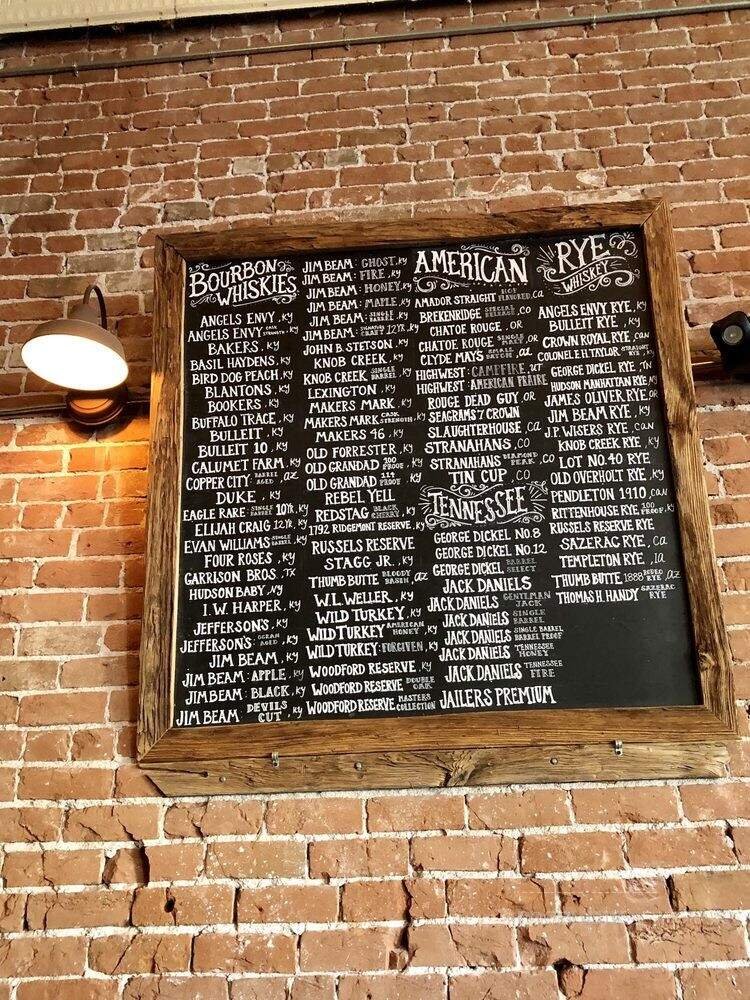 BOURBON
WHISKIES
ANGELS ENVY, KY
ANGELS ENVY CASK STRENGTH, KY
BAKERS, KY
BASIL HAYDENS, KY
BIRD DOG PEACH, KY
BLANTONS, KY
BOOKERS, KY
BUFFALO TRACE, KY
BULLEIT, KY
BULLEIT 10, KY
CALUMET FARM, KY
COPPER CITY: BARREL AGED, AZ
DUKE, KY
EAGLE RARE: SINGLE BARREL 10YR, KY
ELIJAH CRAIG 12YR, KY
EVAN WILLIAMS SINGLE BARREL, KY
FOUR ROSES, KY
GARRISON BROS. TX
HUDSON BABY, NY
I.W. HARPER, KY
JEFFERSON'S, KY
JEFFERSON'S: OCEAN AGED, KY
JIM BEAM, KY
JIM BEAM: APPLE, KY
JIM BEAM: BLACK, KY
JIM BEAM: DEVILS CUT, KY
JIM BEAM: GHOST, KY
JIM BEAM: FIRE, KY
JIM BEAM: HONEY, KY
JIM BEAM: MAPLE, KY
JIM BEAM: SINGLE BARREL, KY
JIM BEAM: SIGNATURE CRAFT 12YR, KY
JOHN B. STETSON, KY
KNOB CREEK, KY
KNOB CREEK SINGLE BARREL, KY
LEXINGTON, KY
MAKERS MARK, KY
MAKERS MARK CASK STRENGTH, KY
MAKERS 46, KY
OLD FORRESTER, KY
OLD GRANDAD 100 PROOF, KY
OLD GRANDAD 114 PROOF, KY
REBEL YELL
REDSTAG BLACK CHERRY, KY
1792 RIDGEMONT RESERVE, KY
RUSSELS RESERVE
STAGG JR., KY
THUMB BUTTE BLOODY BASIN, AZ
W.L. WELLER, KY
WILD TURKEY, KY
WILD TURKEY AMERICAN HONEY, KY
WILD TURKEY: FORGIVEN, KY
WOODFORD RESERVE, KY
WOODFORD RESERVE DOUBLE OAK
WOODFORD RESERVE MASTERS COLLECTION
AMERICAN
AMADOR STRAIGHT FLAVORED, CA
BREKENRIDGE SPECIAL RELEASE, CO
CHATOE ROUGE, OR
CHATOE ROUGE SINGLE MALT, OR
CLYDE MAYS SMALL BATCH, AZ
HIGHWEST: CAMPFIRE, UT
HIGHWEST: AMERICAN PRAIRE
ROUGE DEAD GUY, OR
SEAGRAMS 7 CROWN
SLAUGHTERHOUSE, CA
STRANAHANS, CO
STRANAHANS DIAMOND PEAK, CO
TIN CUP, CO
TENNESSEE
GEORGE DICKEL NO.8
GEORGE DICKEL NO.12
GEORGE DICKEL BARREL SELECT
JACK DANIELS
JACK DANIELS GENTLEMAN JACK
JACK DANIELS SINGLE BARREL
JACK DANIELS SINGLE BARREL BARREL PROOF
JACK DANIELS TENNESSEE HONEY
JACK DANIELS TENNESSEE FIRE
JAILERS PREMIUM
RYE
WHISKEY
ANGELS ENVY RYE, KY
BULLEIT RYE, KY
CROWN ROYAL RYE, CAN
COLONEL E.H. TAYLOR STRAIGHT RYE, KY
GEORGE DICKEL RYE, TN
HUDSON MANHATTAN RYE, NY
JAMES OLIVER RYE, OR
JIM BEAM RYE, KY
J.P. WISERS RYE, CAN
KNOB CREEK RYE, KY
LOT NO.40 RYE
OLD OVERHOLT RYE, KY
PENDLETON 1910, CAN
RITTENHOUSE RYE, 100 PROOF, KY
RUSSELS RESERVE RYE
SAZERAC RYE, CA
TEMPLETON RYE, IA
THUMB BUTTE 1888 RODEO RYE, AZ
THOMAS H. HANDY SAZERAC RYE